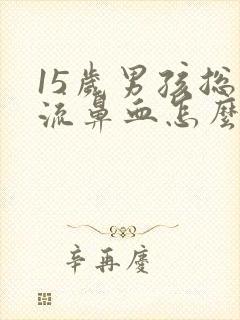 15歲男孩总
流鼻血怎麼
辛再慶